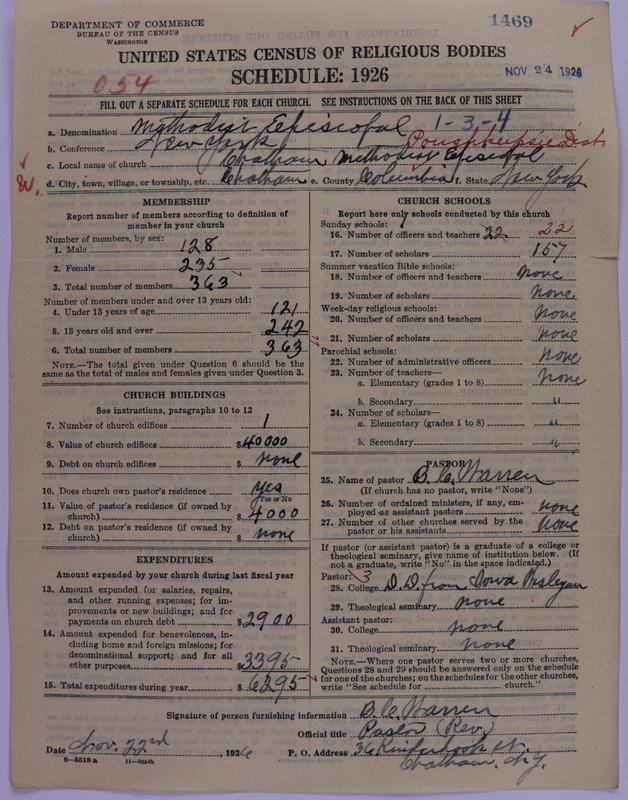 DEPARTMENT OF COMMERCE
BUREAU OF THE CENSUS
WASHINGTON
1469
UNITED STATES CENSUS OF RELIGIOUS BODIES
SCHEDULE: 1926
NOV 24 1926
054
FILL OUT A SEPARATE SCHEDULE FOR EACH CHURCH. SEE INSTRUCTIONS ON THE BACK OF THIS SHEET
a. Denomination Methodist Episcopal 1-3-4
b. Conference New York Poughkeepsie Dist
c. Local name of church Chatham Methodist Episcopal
d. City, town, village, or township, etc. Chatham e. County Columbia f. State New York
MEMBERSHIP
Report number of members according to definition of member in your church
Number of members, by sex:
1. Male 128
2. Female 235
3. Total number of members 363
Number of members under and over 13 years old:
4. Under 13 years of age 121
5. 13 years old and over 242
6. Total number of members 363
NOTE.—The total given under Question 6 should be the same as the total of males and females given under Question 3.
CHURCH BUILDINGS
See instructions, paragraphs 10 to 12
7. Number of church edifices 1
8. Value of church edifices $40000
9. Debt on church edifices $ none
10. Does church own pastor's residence yes
Yes or No
11. Value of pastor's residence (if owned by church) $4000
12. Debt on pastor's residence (if owned by church) $ none
EXPENDITURES
Amount expended by your church during last fiscal year
13. Amount expended for salaries, repairs, and other running expenses; for improvements or new buildings; and for payments on church debt $2900
14. Amount expended for benevolences, including home and foreign missions; for denominational support; and for all other purposes $3395
15. Total expenditures during year $6295
CHURCH SCHOOLS
Report here only schools conducted by this church
Sunday schools: 1
16. Number of officers and teachers 22 22
17. Number of scholars 157
Summer vacation Bible schools:
18. Number of officers and teachers none
19. Number of scholars none
Week-day religious schools:
20. Number of officers and teachers none
21. Number of scholars none
Parochial schools:
22. Number of administrative officers none
23. Number of teachers—
a. Elementary (grades 1 to 8) none
b. Secondary "
24. Number of scholars—
a. Elementary (grades 1 to 8) "
b. Secondary "
PASTOR
25. Name of pastor B. C. Warren
(If church has no pastor, write "None")
26. Number of ordained ministers, if any, employed as assistant pastors none
27. Number of other churches served by the pastor or his assistants none
If pastor (or assistant pastor) is a graduate of a college or theological seminary, give name of institution below. (If not a graduate, write "No" in the space indicated.)
Pastor: 3
28. College D.D. from Iowa Wesleyan
29. Theological seminary none
Assistant pastor:
30. College none
31. Theological seminary none
NOTE.—Where one pastor serves two or more churches, Questions 28 and 29 should be answered only on the schedule for one of the churches; on the schedules for the other churches, write "See schedule for church."
Signature of person furnishing information B. C. Warren
Official title Pastor (Rev.)
Date Nov. 22nd, 1926 P. O. Address 36 Kinderhook St.
8—5518a 11—9034b Chatham, N.Y.